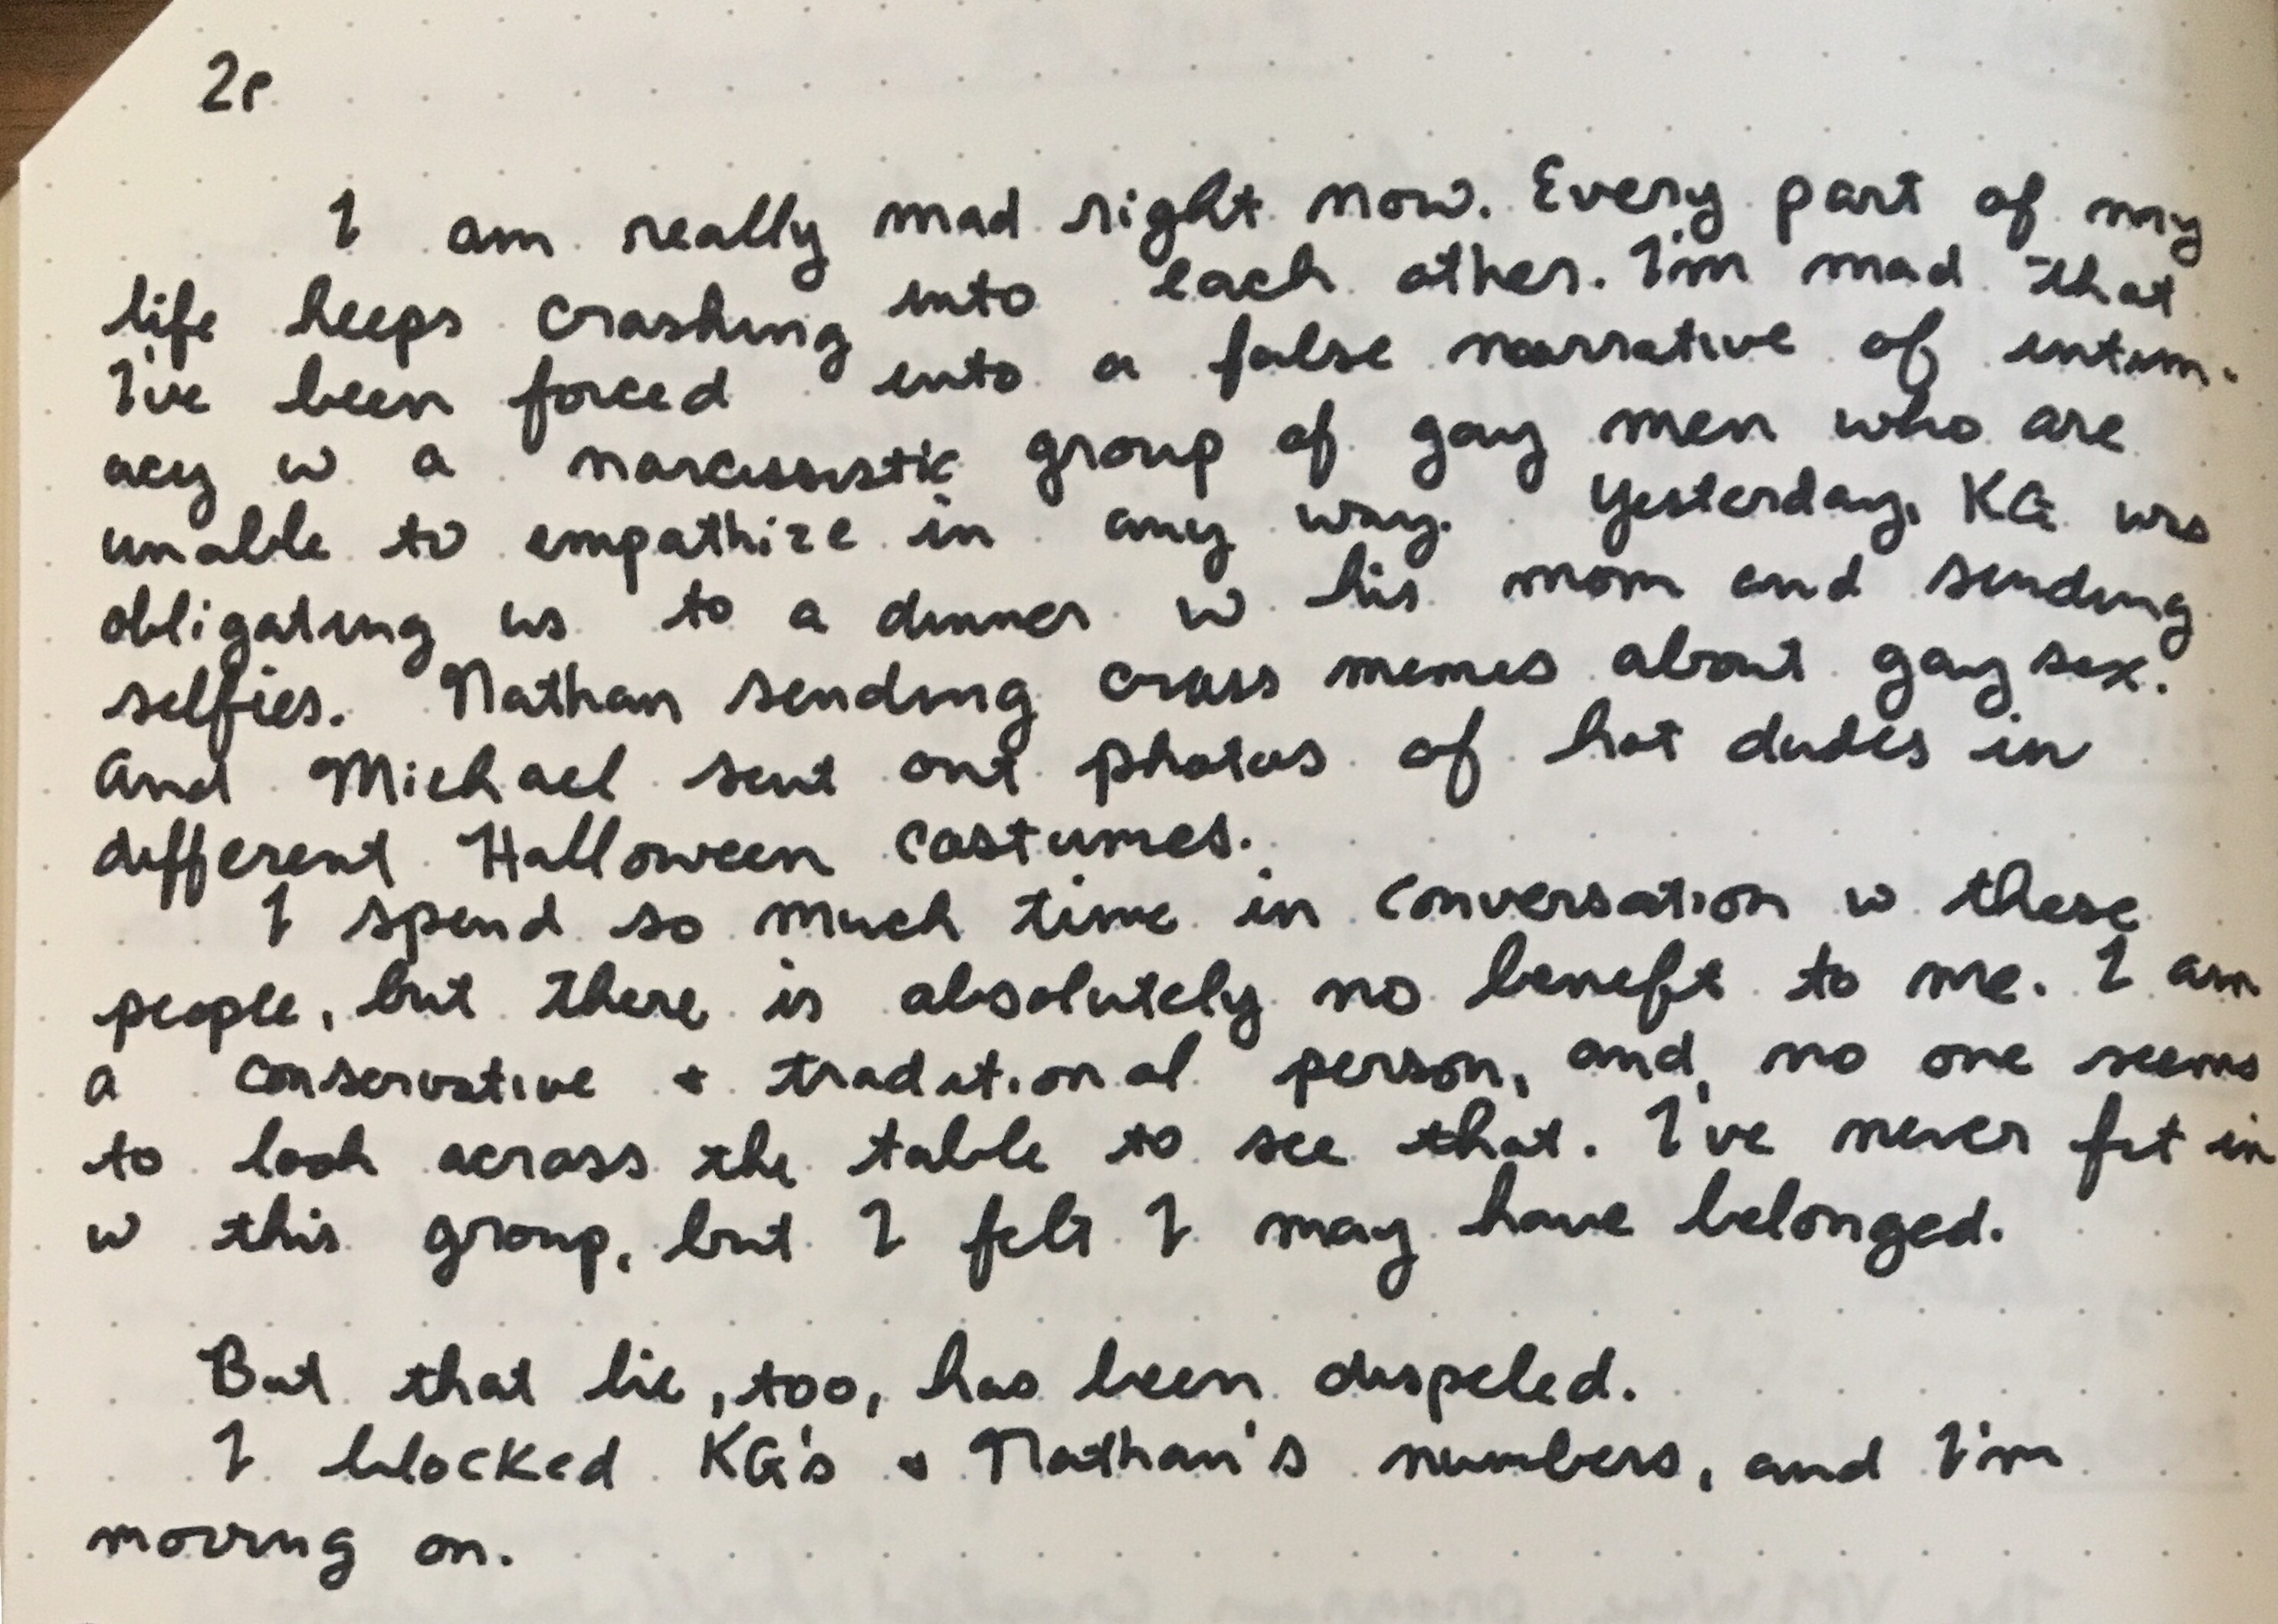 2P
I am really mad right now. Every part of my
life keeps crashing into each other. I'm mad that
I've been forced into a false narrative of intim-
acy w a narcissistic group of gay men who are
unable to empathize in any way. Yesterday, KG was
obligating us to a dinner w his mom and sending
selfies. Nathan sending crass memes about gay sex.
And Michael sent out photos of hot dudes in
different Halloween costumes.
I spend so much time in conversation w these
people, but there is absolutely no benefit to me. I am
a conservative + traditional person, and, no one seems
to look across the table to see that. I've never fit in
w this group, but I felt I may have belonged.
But that lie, too, has been dispeled.
I blocked KG's + Nathan's numbers, and I'm
moving on.